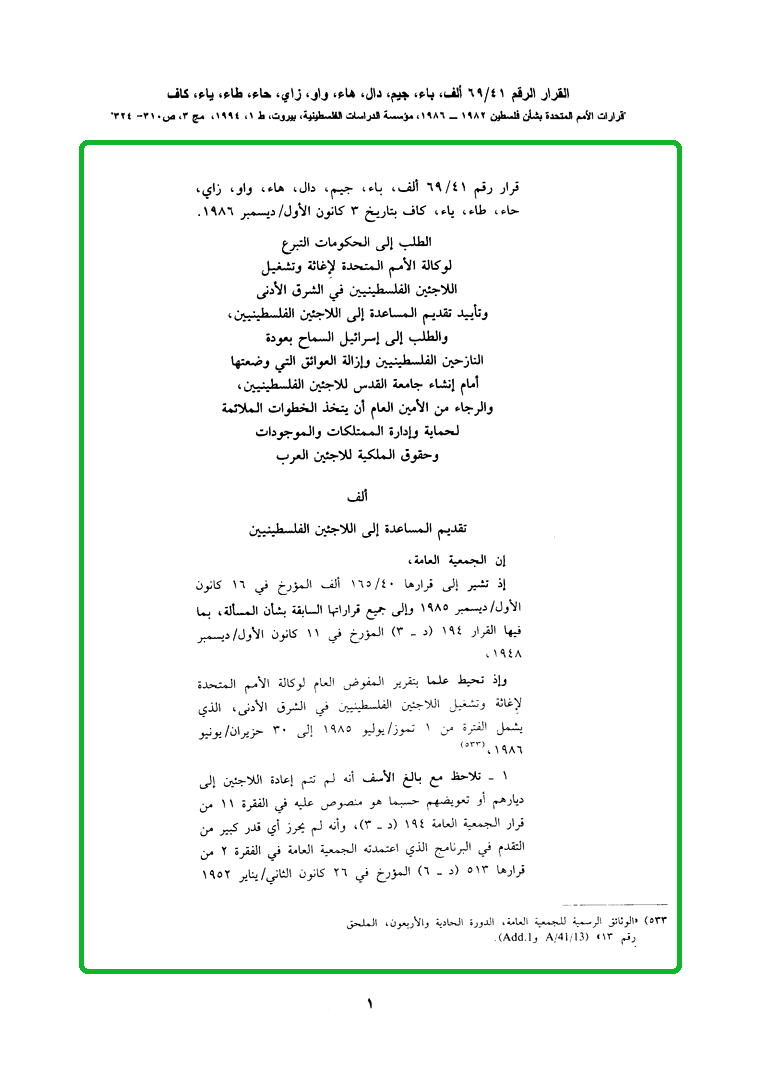 القرار الرقم ٦٩/٤١ ألف، باء، جيم، دال، هاء، واو، زاي، حاء، طاء، ياء، كاف
"قرارات الأمم المتحدة بشأن فلسطين ١٩٨٢ – ١٩٨٦، مؤسسة الدراسات الفلسطينية، بيروت، ط ١، ١٩٩٤، مج ٣، ص٣١٠- ٣٢٤"
قرار رقم ٦٩/٤١ ألف، باء، جيم، دال، هاء، واو، زاي،
حاء، طاء، ياء، كاف بتاريخ ٣ كانون الأول/ديسمبر ١٩٨٦.
الطلب إلى الحكومات التبرع
لوكالة الأمم المتحدة لإغاثة وتشغيل
اللاجئين الفلسطينيين في الشرق الأدنى
وتأييد تقديم المساعدة إلى اللاجئين الفلسطينيين،
والطلب إلى إسرائيل السماح بعودة
النازحين الفلسطينيين وإزالة العوائق التي وضعتها
أمام إنشاء جامعة القدس للاجئين الفلسطينيين،
والرجاء من الأمين العام أن يتخذ الخطوات الملائمة
لحماية وإدارة الممتلكات والموجودات
وحقوق الملكية للاجئين العرب
ألف
تقديم المساعدة إلى اللاجئين الفلسطينيين
إن الجمعية العامة،
إذ تشير إلى قرارها ١٦٥/٤٠ ألف المؤرخ في ١٦ كانون
الأول/ديسمبر ١٩٨٥ وإلى جميع قراراتها السابقة بشأن المسألة، بما
فيها القرار ١٩٤ (د ـ ٣) المؤرخ في ١١ كانون الأول/ديسمبر
١٩٤٨،
وإذ تحيط علما بتقرير المفوض العام لوكالة الأمم المتحدة
لإغاثة وتشغيل اللاجئين الفلسطينيين في الشرق الأدنى، الذي
يشمل الفترة من ١ تموز/يوليو ١٩٨٥ إلى ٣٠ حزيران/يونيو
١٩٨٦،(٥٣٣)
١ ـ تلاحظ مع بالغ الأسف أنه لم تتم إعادة اللاجئين إلى
ديارهم أو تعويضهم حسبما هو منصوص عليه في الفقرة ١١ من
قرار الجمعية العامة ١٩٤ (د ـ ٣)، وأنه لم يحرز أي قدر كبير من
التقدم في البرنامج الذي اعتمدته الجمعية العامة في الفقرة ٢ من
قرارها ٥١٣ (د ـ ٦) المؤرخ في ٢٦ كانون الثاني/يناير ١٩٥٢
٥٣٣) «الوثائق الرسمية للجمعية العامة، الدورة الحادية والأربعون، الملحق
رقم ١٣» (A/41/13 وAdd.1).
١